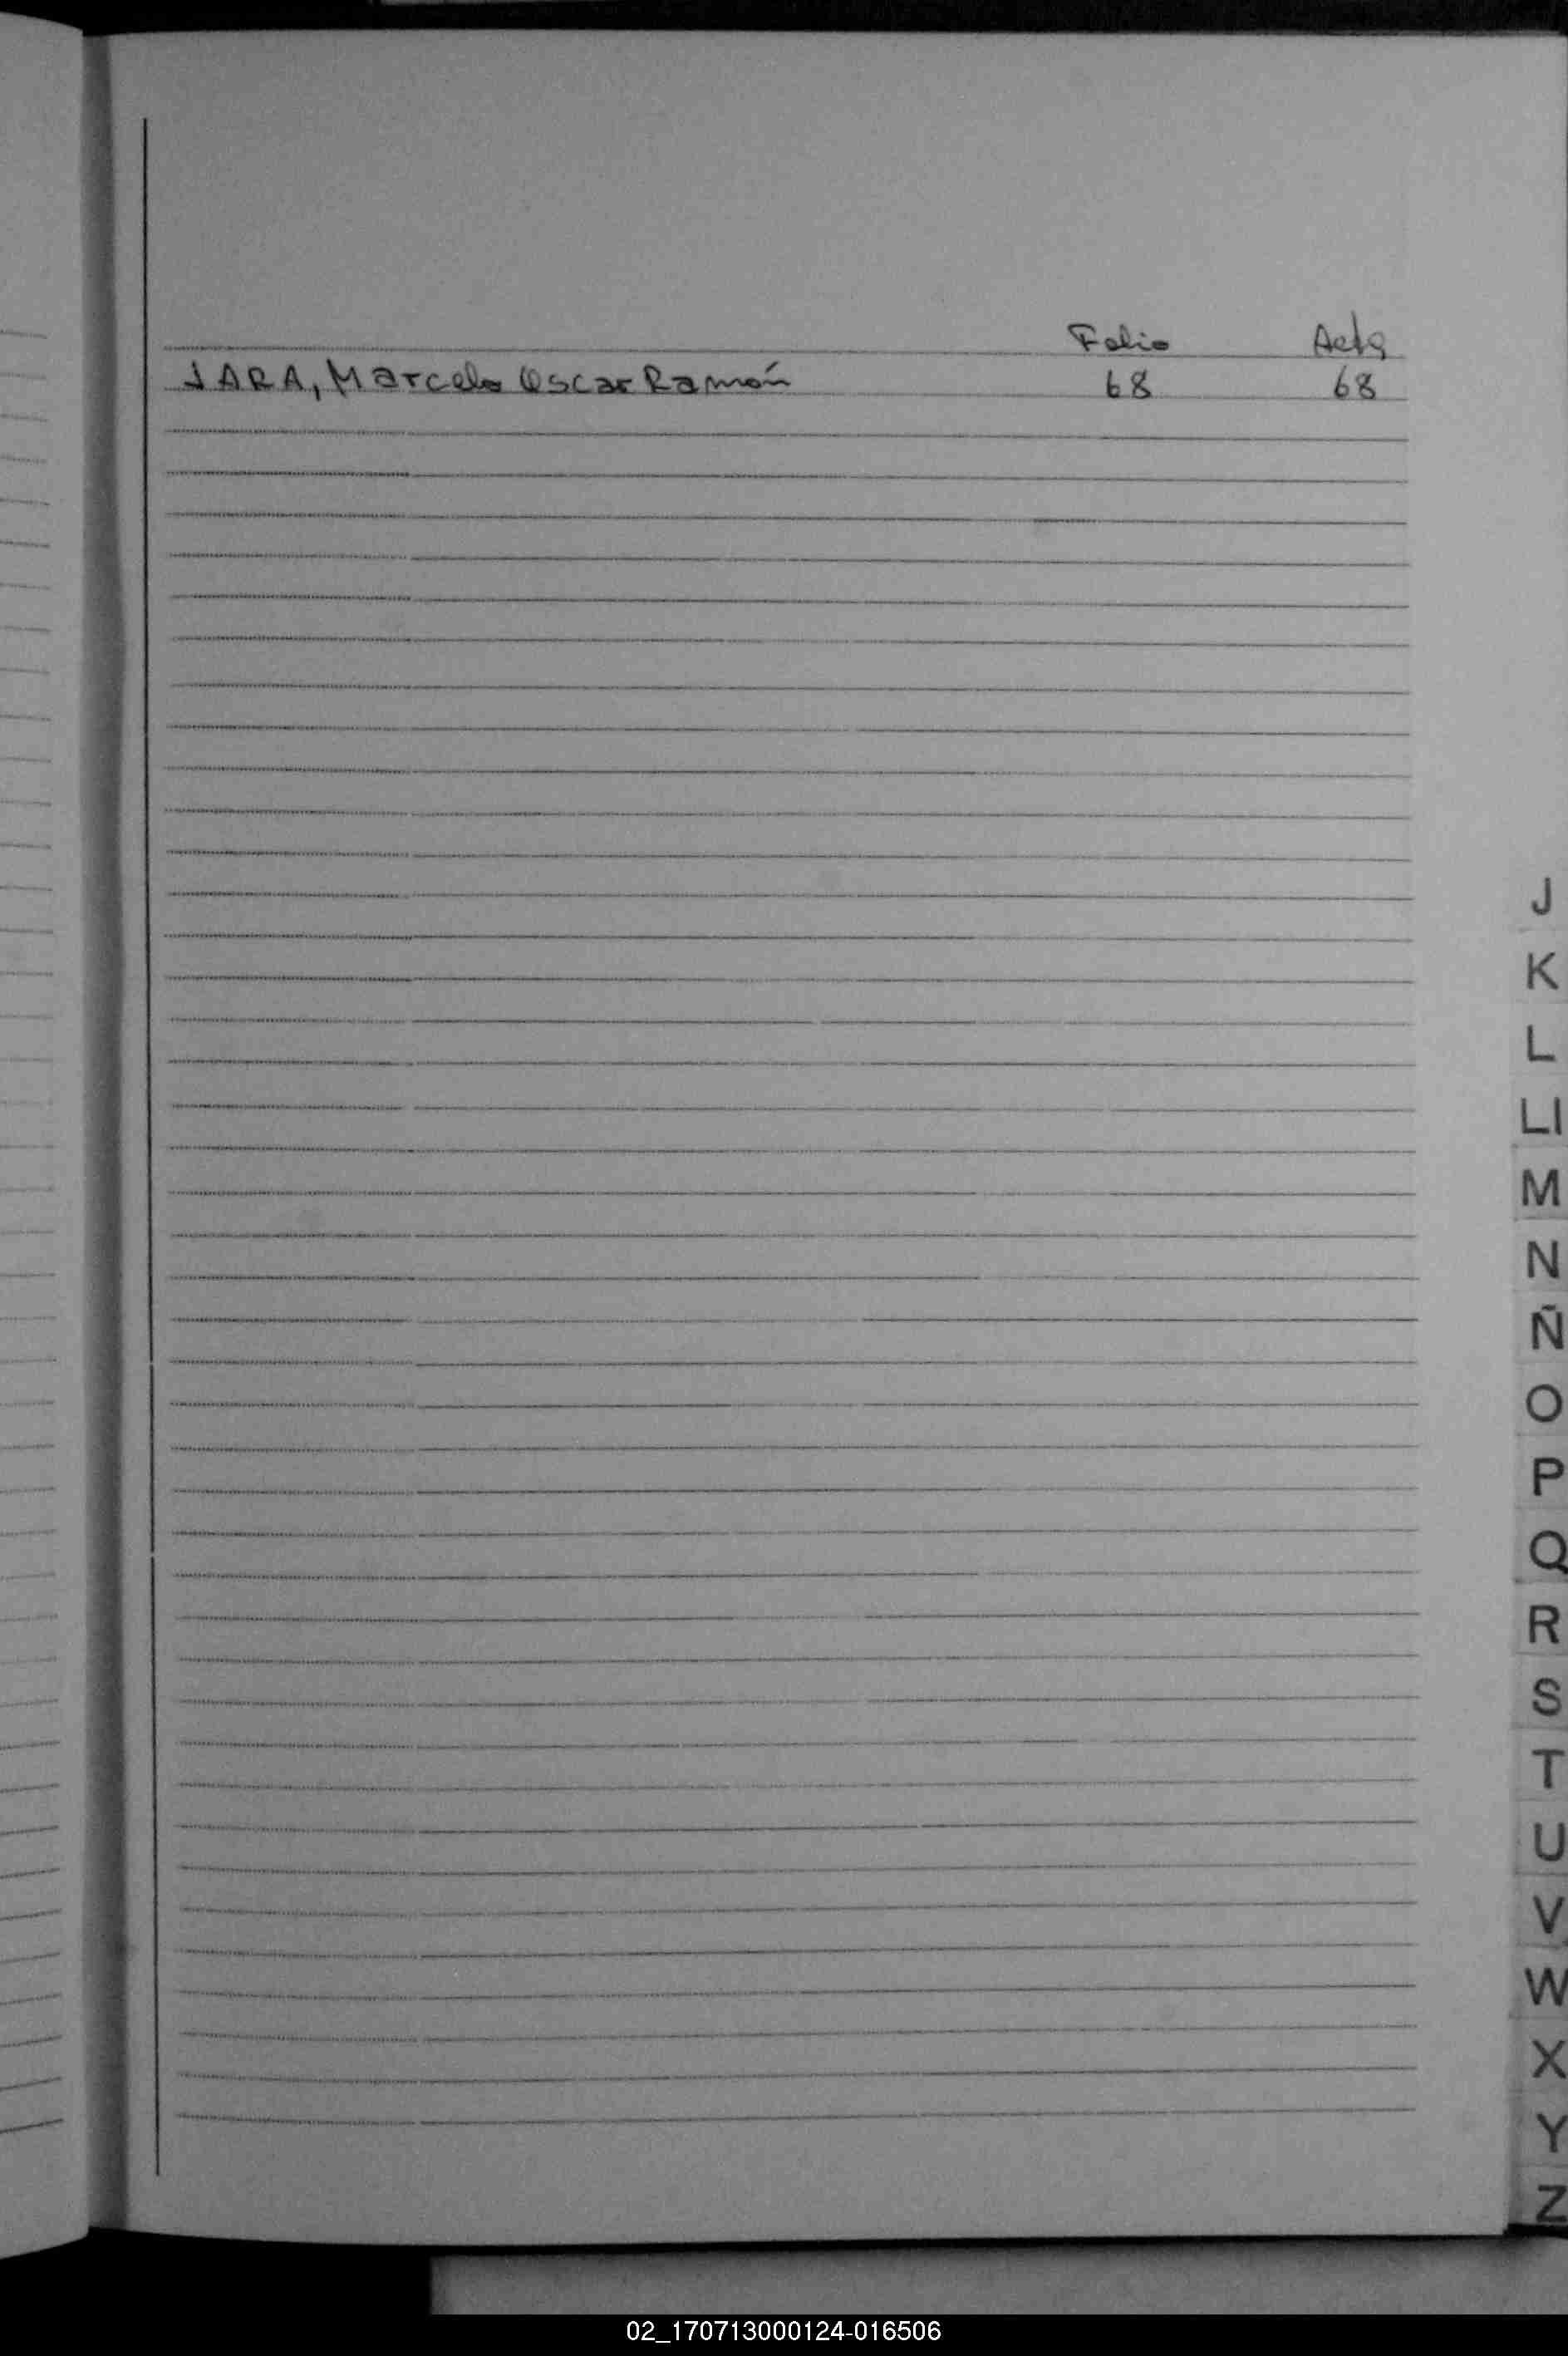 Folio Acta
JARA, Marcelo Oscar Ramón 68 68
J
K
L
Ll
M
N
Ñ
O
P
Q
R
S
T
U
V
W
X
Y
Z
02_170713000124-016506